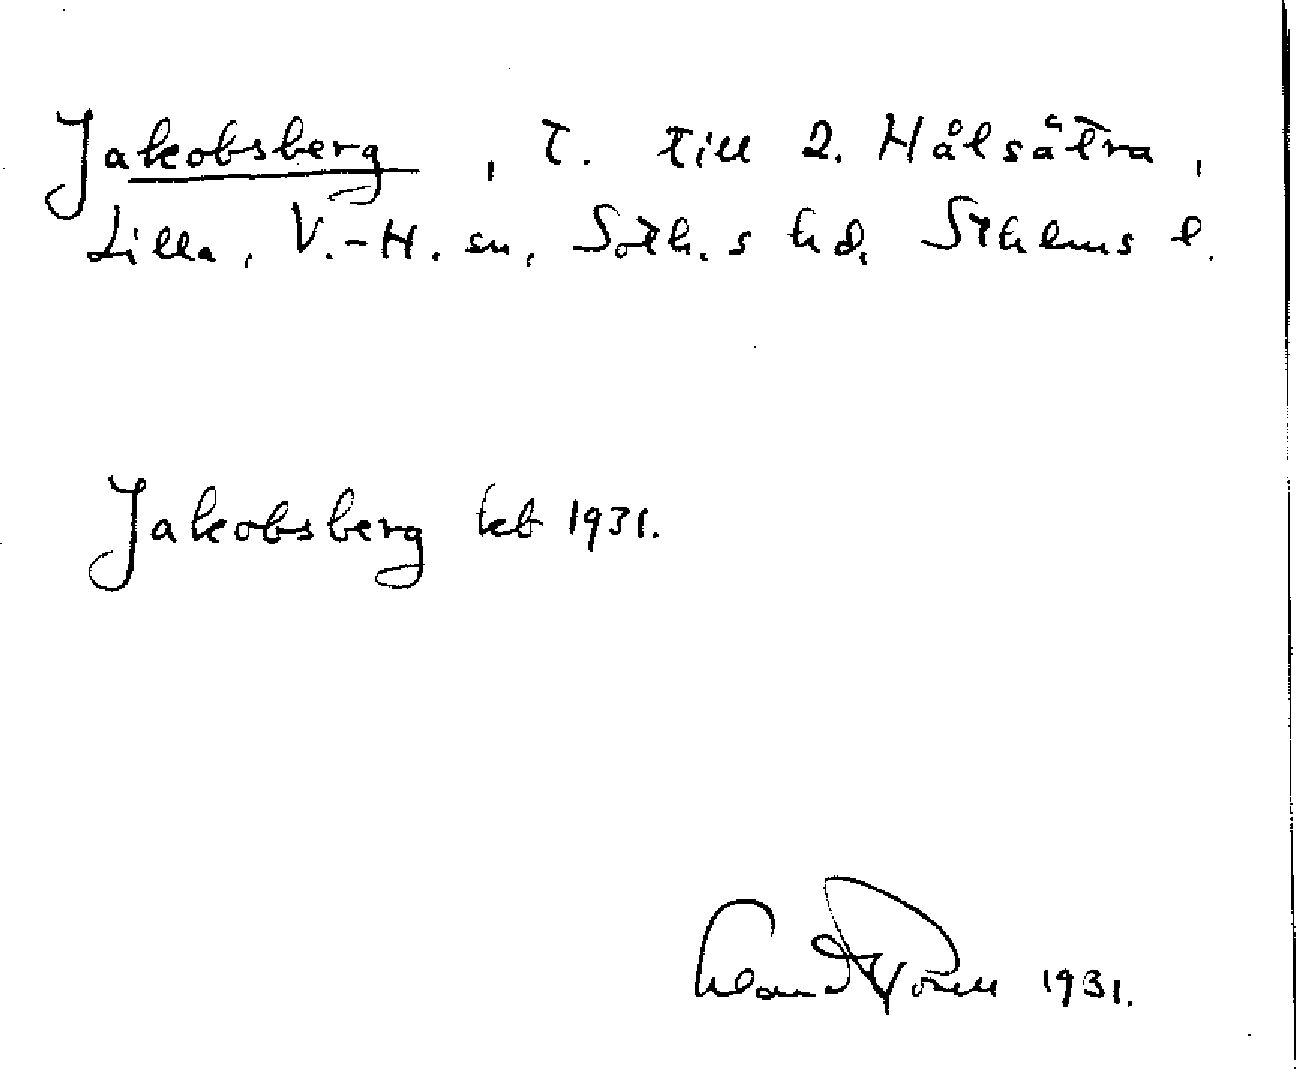 Jakobsberg, t. till 2. Hålsätra,
Lilla, V.-H. sn, Soth.s hd. Sthlms l.
Jakobsberg kb 1931.
1931.